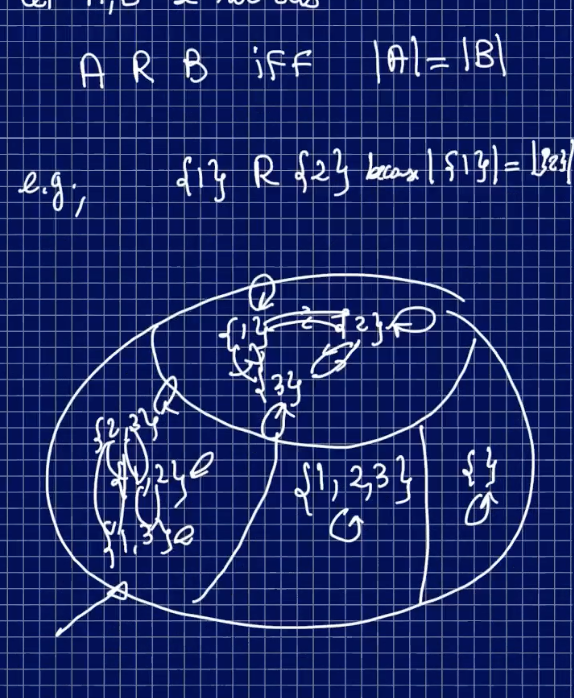 A R B iFF |A| = |B|
e.g; {1} R {2} because |{1}| = |{2}|
{1} {2}
{3}
{2,3}
{1,2} {1,2,3} {}
{1,3}